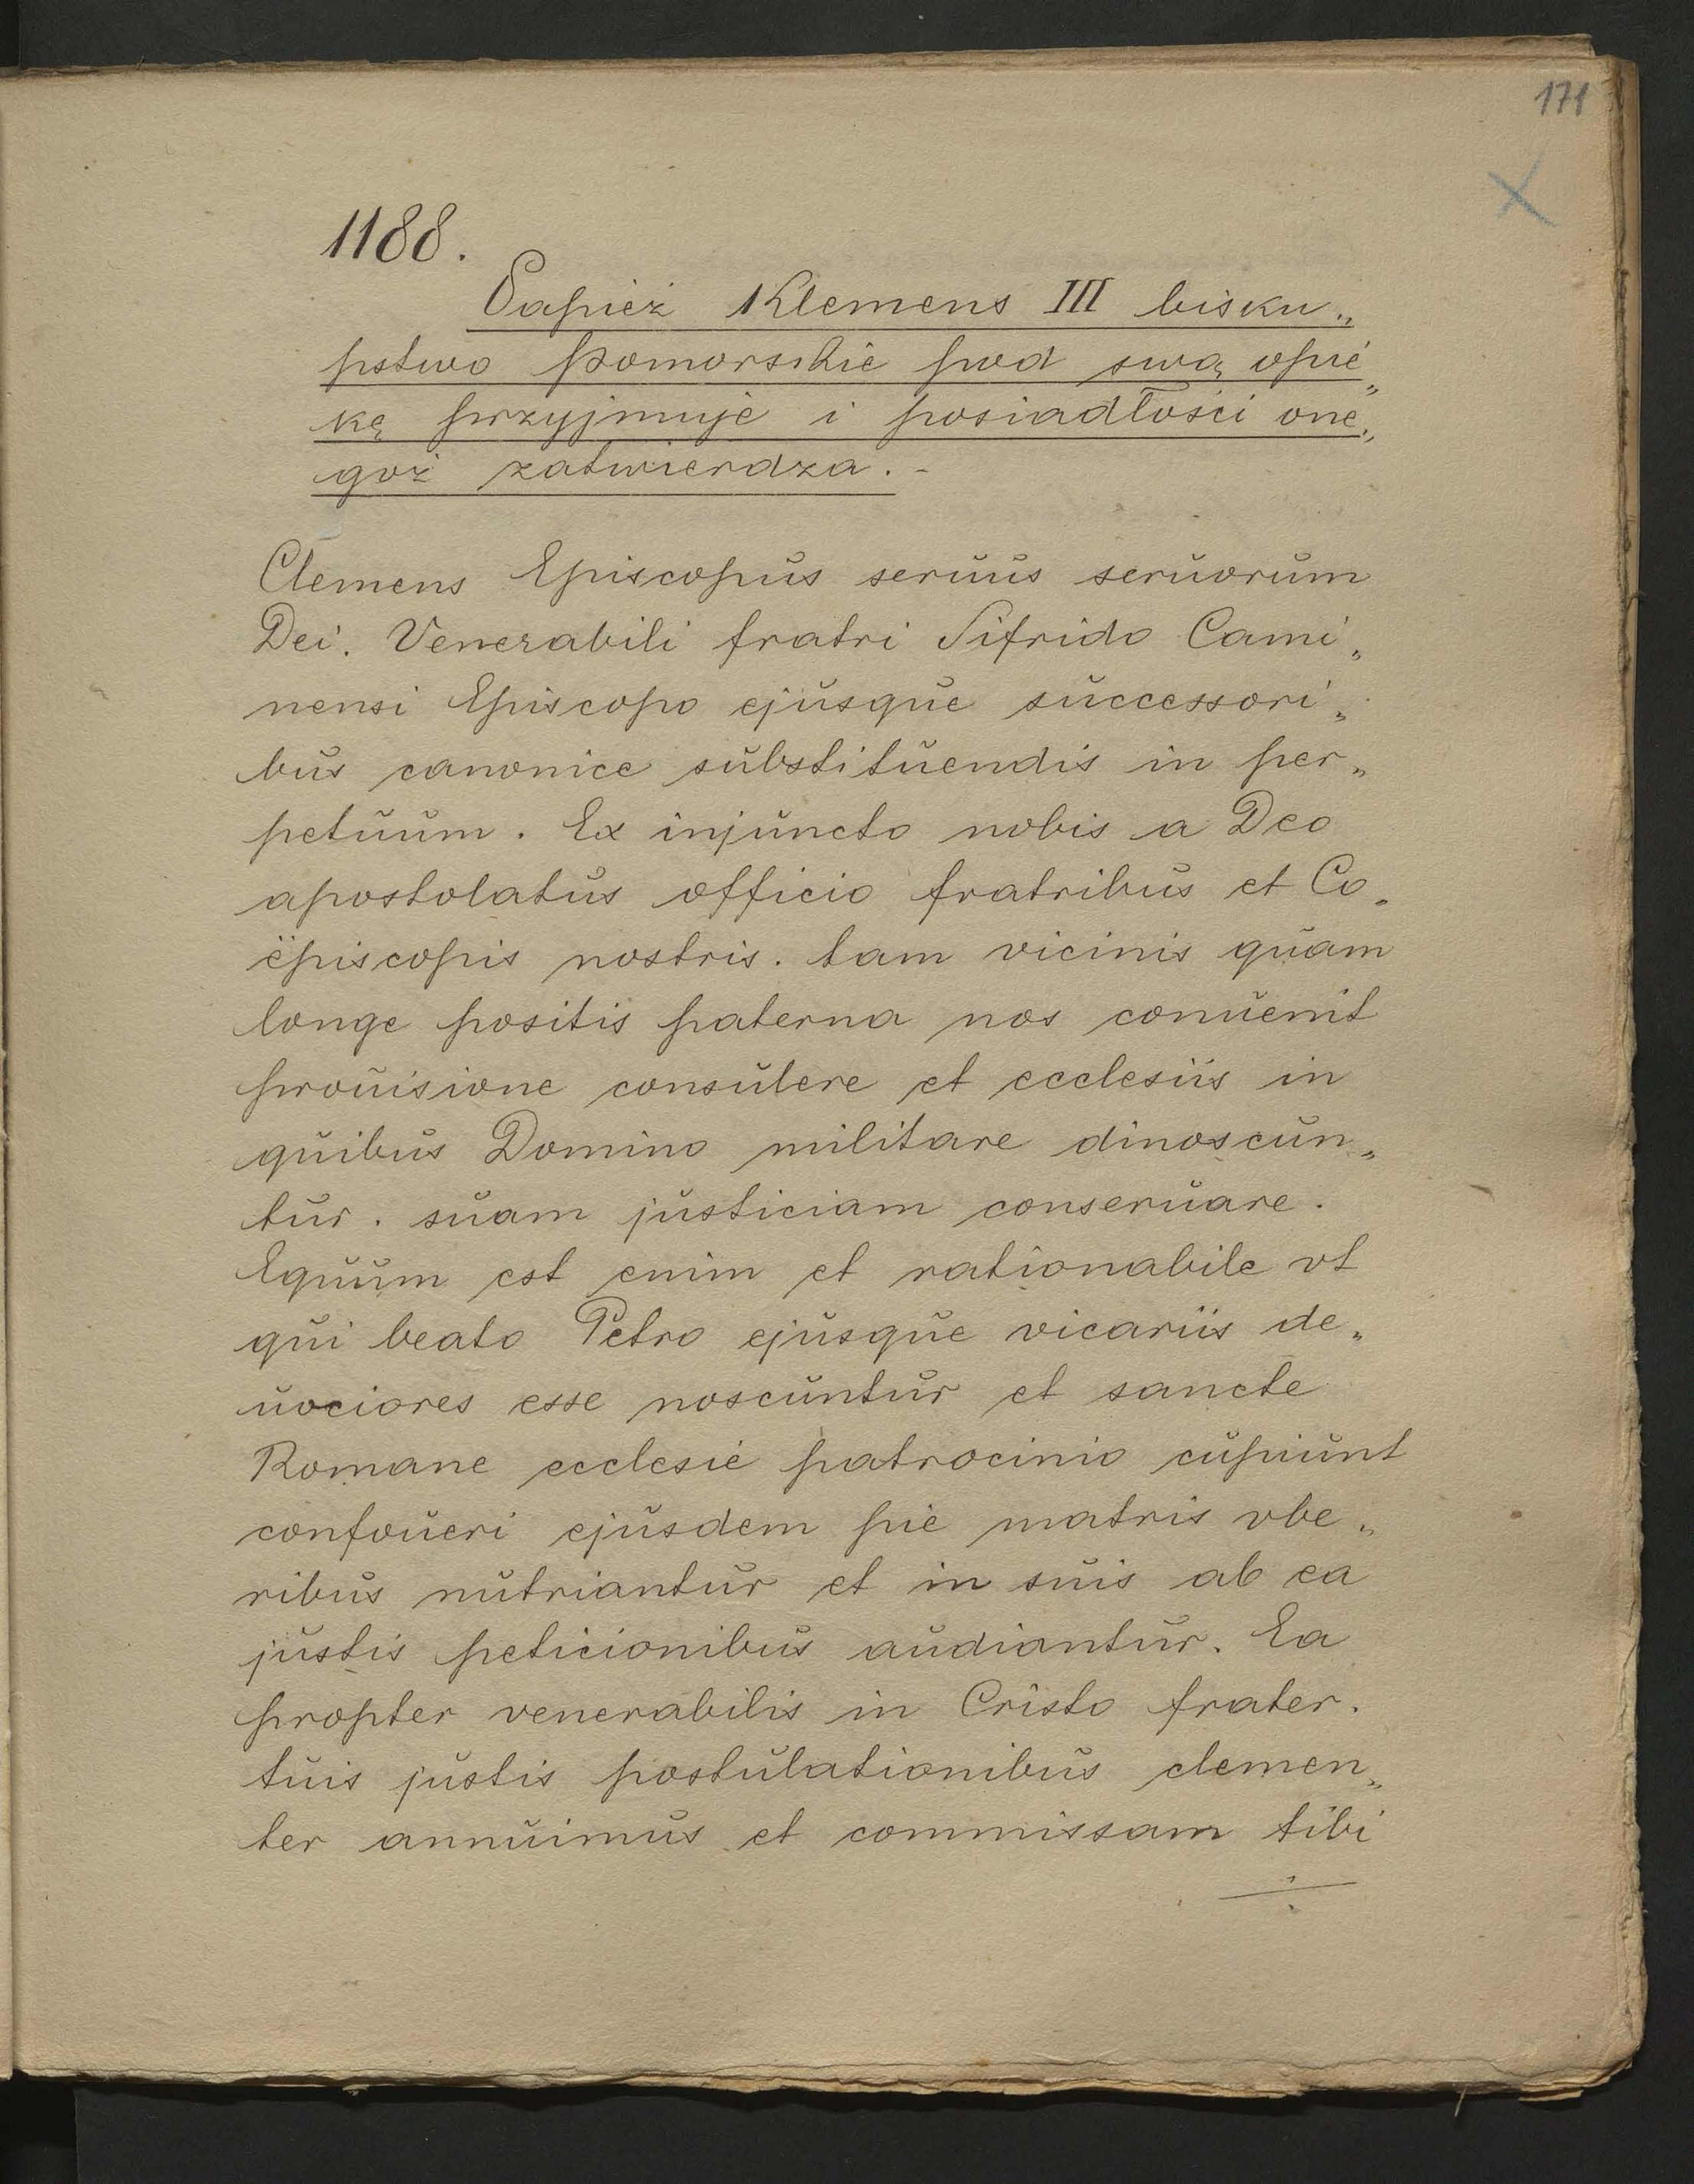 171
1188.
Papież Klemens III bisku„
pstwo Pomorskie pod swą opie„
kę przyjmuje i posiadłości one„
goż zatwierdza. -
Clemens Episcopus seruus seruorum
Dei. Venerabili fratri Sifrido Cami„
nensi Episcopo ejusque successori„
bus canonice substituendis in per„
petuum. Ex injuncto nobis a Deo
apostolatus officio fratribus et Co„
ëpiscopis nostris. tam vicinis quam
longe positis paterna nos conuenit
prouisione consulere et ecclesiis in
quibus Domino militare dinoscun„
tur. suam justiciam conseruare.
Equum est enim et rationabile vt
qui beato Petro ejusque vicariis de„
uociores esse noscuntur et sancte
Romane ecclesie patrocinio cupiunt
confoueri ejusdem pie matris vbe„
ribus nutriantur et in suis ab ea
justis peticionibus audiantur. Ea
propter venerabilis in Cristo frater.
tuis justis postulationibus clemen„
ter annuimus et commissam tibi